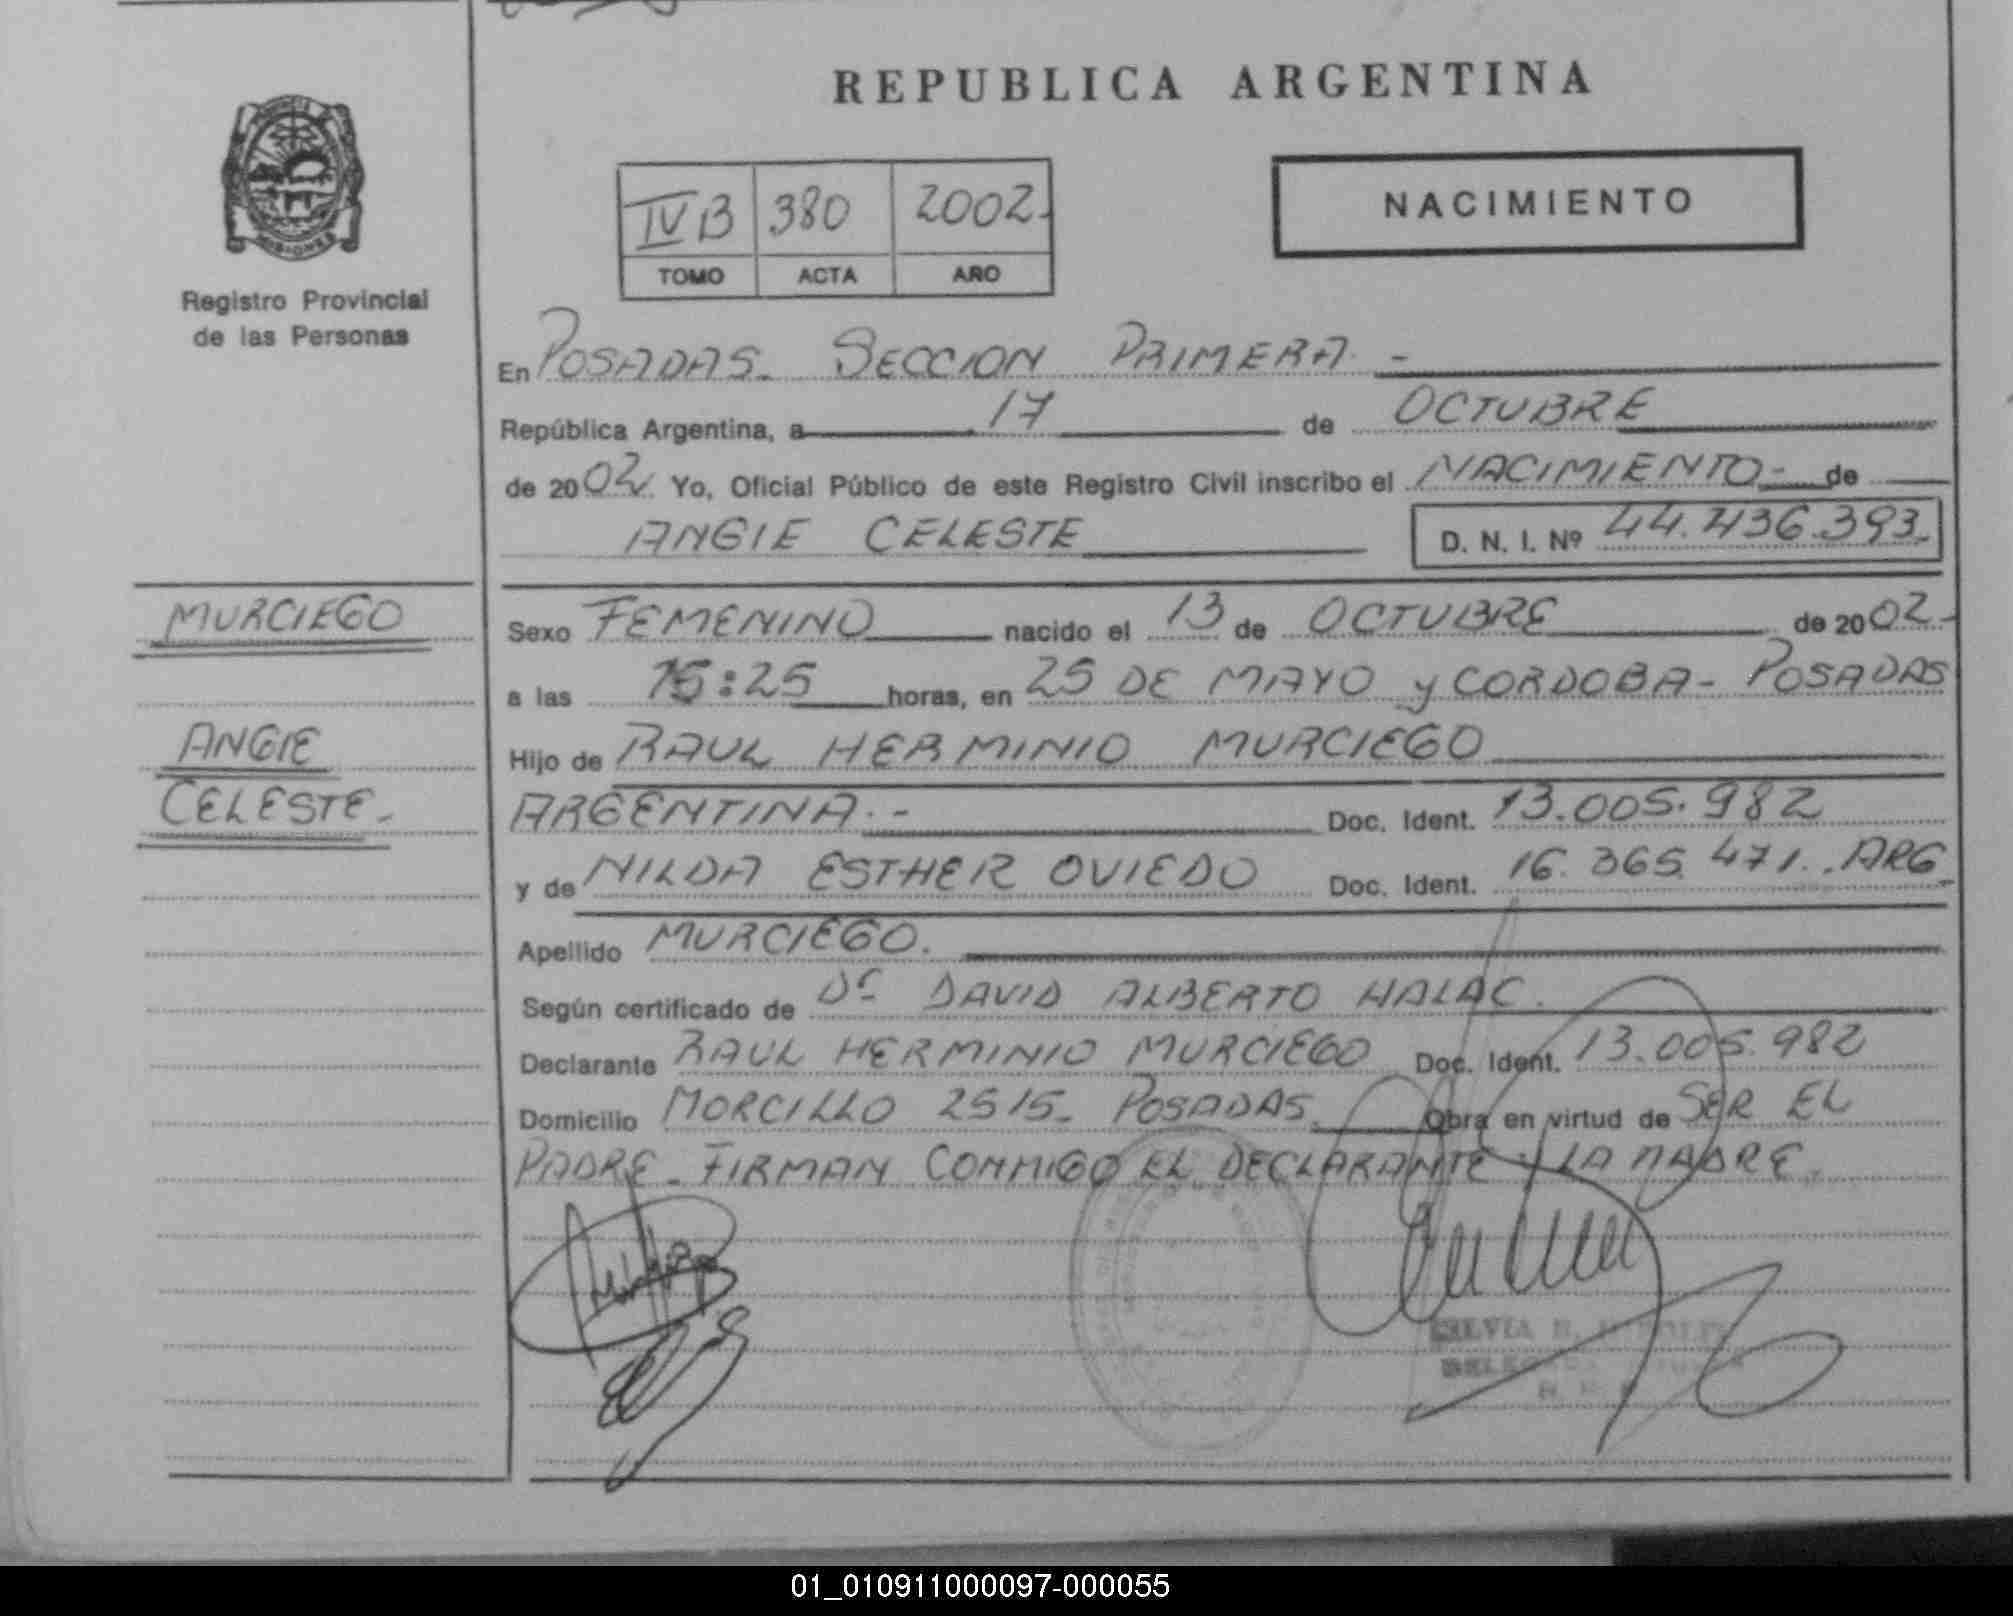 REPUBLICA ARGENTINA
MISIONES
Registro Provincial
de las Personas
IV B 380 2002
TOMO ACTA AÑO
NACIMIENTO
En POSADAS. SECCION PRIMERA. -
República Argentina, a 17 de OCTUBRE
de 2002 Yo, Oficial Público de este Registro Civil inscribo el NACIMIENTO- de
ANGIE CELESTE D. N. I. Nº 44.436.393.
MURCIEGO
ANGIE
CELESTE.
Sexo FEMENINO nacido el 13 de OCTUBRE de 2002-
a las 15:25 horas, en 25 DE MAYO y CORDOBA- POSADAS
Hijo de RAUL HERMINIO MURCIEGO
ARGENTINA.- Doc. Ident. 13.005.982
y de NILDA ESTHER OVIEDO Doc. Ident. 16.365.471. ARG.
Apellido MURCIEGO.
Según certificado de Dr DAVID ALBERTO HALAC.
Declarante RAUL HERMINIO MURCIEGO Doc. Ident. 13.005.982
Domicilio MORCILLO 2515- POSADAS Obra en virtud de SER EL
PADRE. FIRMAN CONMIGO EL DECLARANTE y LA MADRE.
01_010911000097-000055